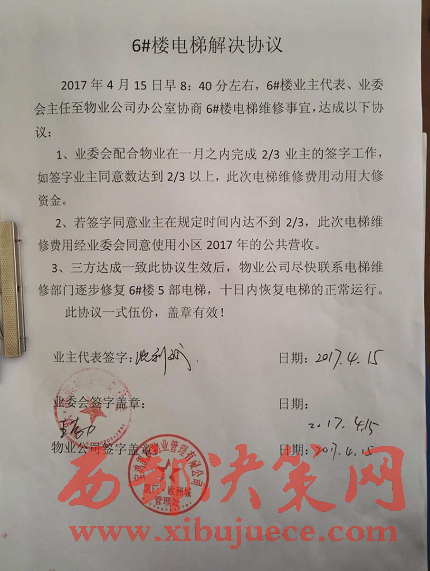 6#楼电梯解决协议
2017年4月15日早8：40分左右，6#楼业主代表、业委
会主任至物业公司办公室协商6#楼电梯维修事宜,达成以下协
议：
1、业委会配合物业在一月之内完成2/3业主的签字工作，
如签字业主同意数达到2/3以上，此次电梯维修费用动用大修
资金。
2、若签字同意业主在规定时间内达不到2/3，此次电梯维
修费用经业委会同意使用小区2017年的公共营收。
3、三方达成一致此协议生效后，物业公司尽快联系电梯维
修部门逐步修复6#楼5部电梯，十日内恢复电梯的正常运行。
此协议一式伍份，盖章有效！
业主代表签字： 日期：2017.4.15
业委会签字盖章： 日期：
2017.4.15
物业公司签字盖章： 日期：2017.4.15
物业管理有限公司
欧洲城
管理处
西部决策网
www.xibujuece.com